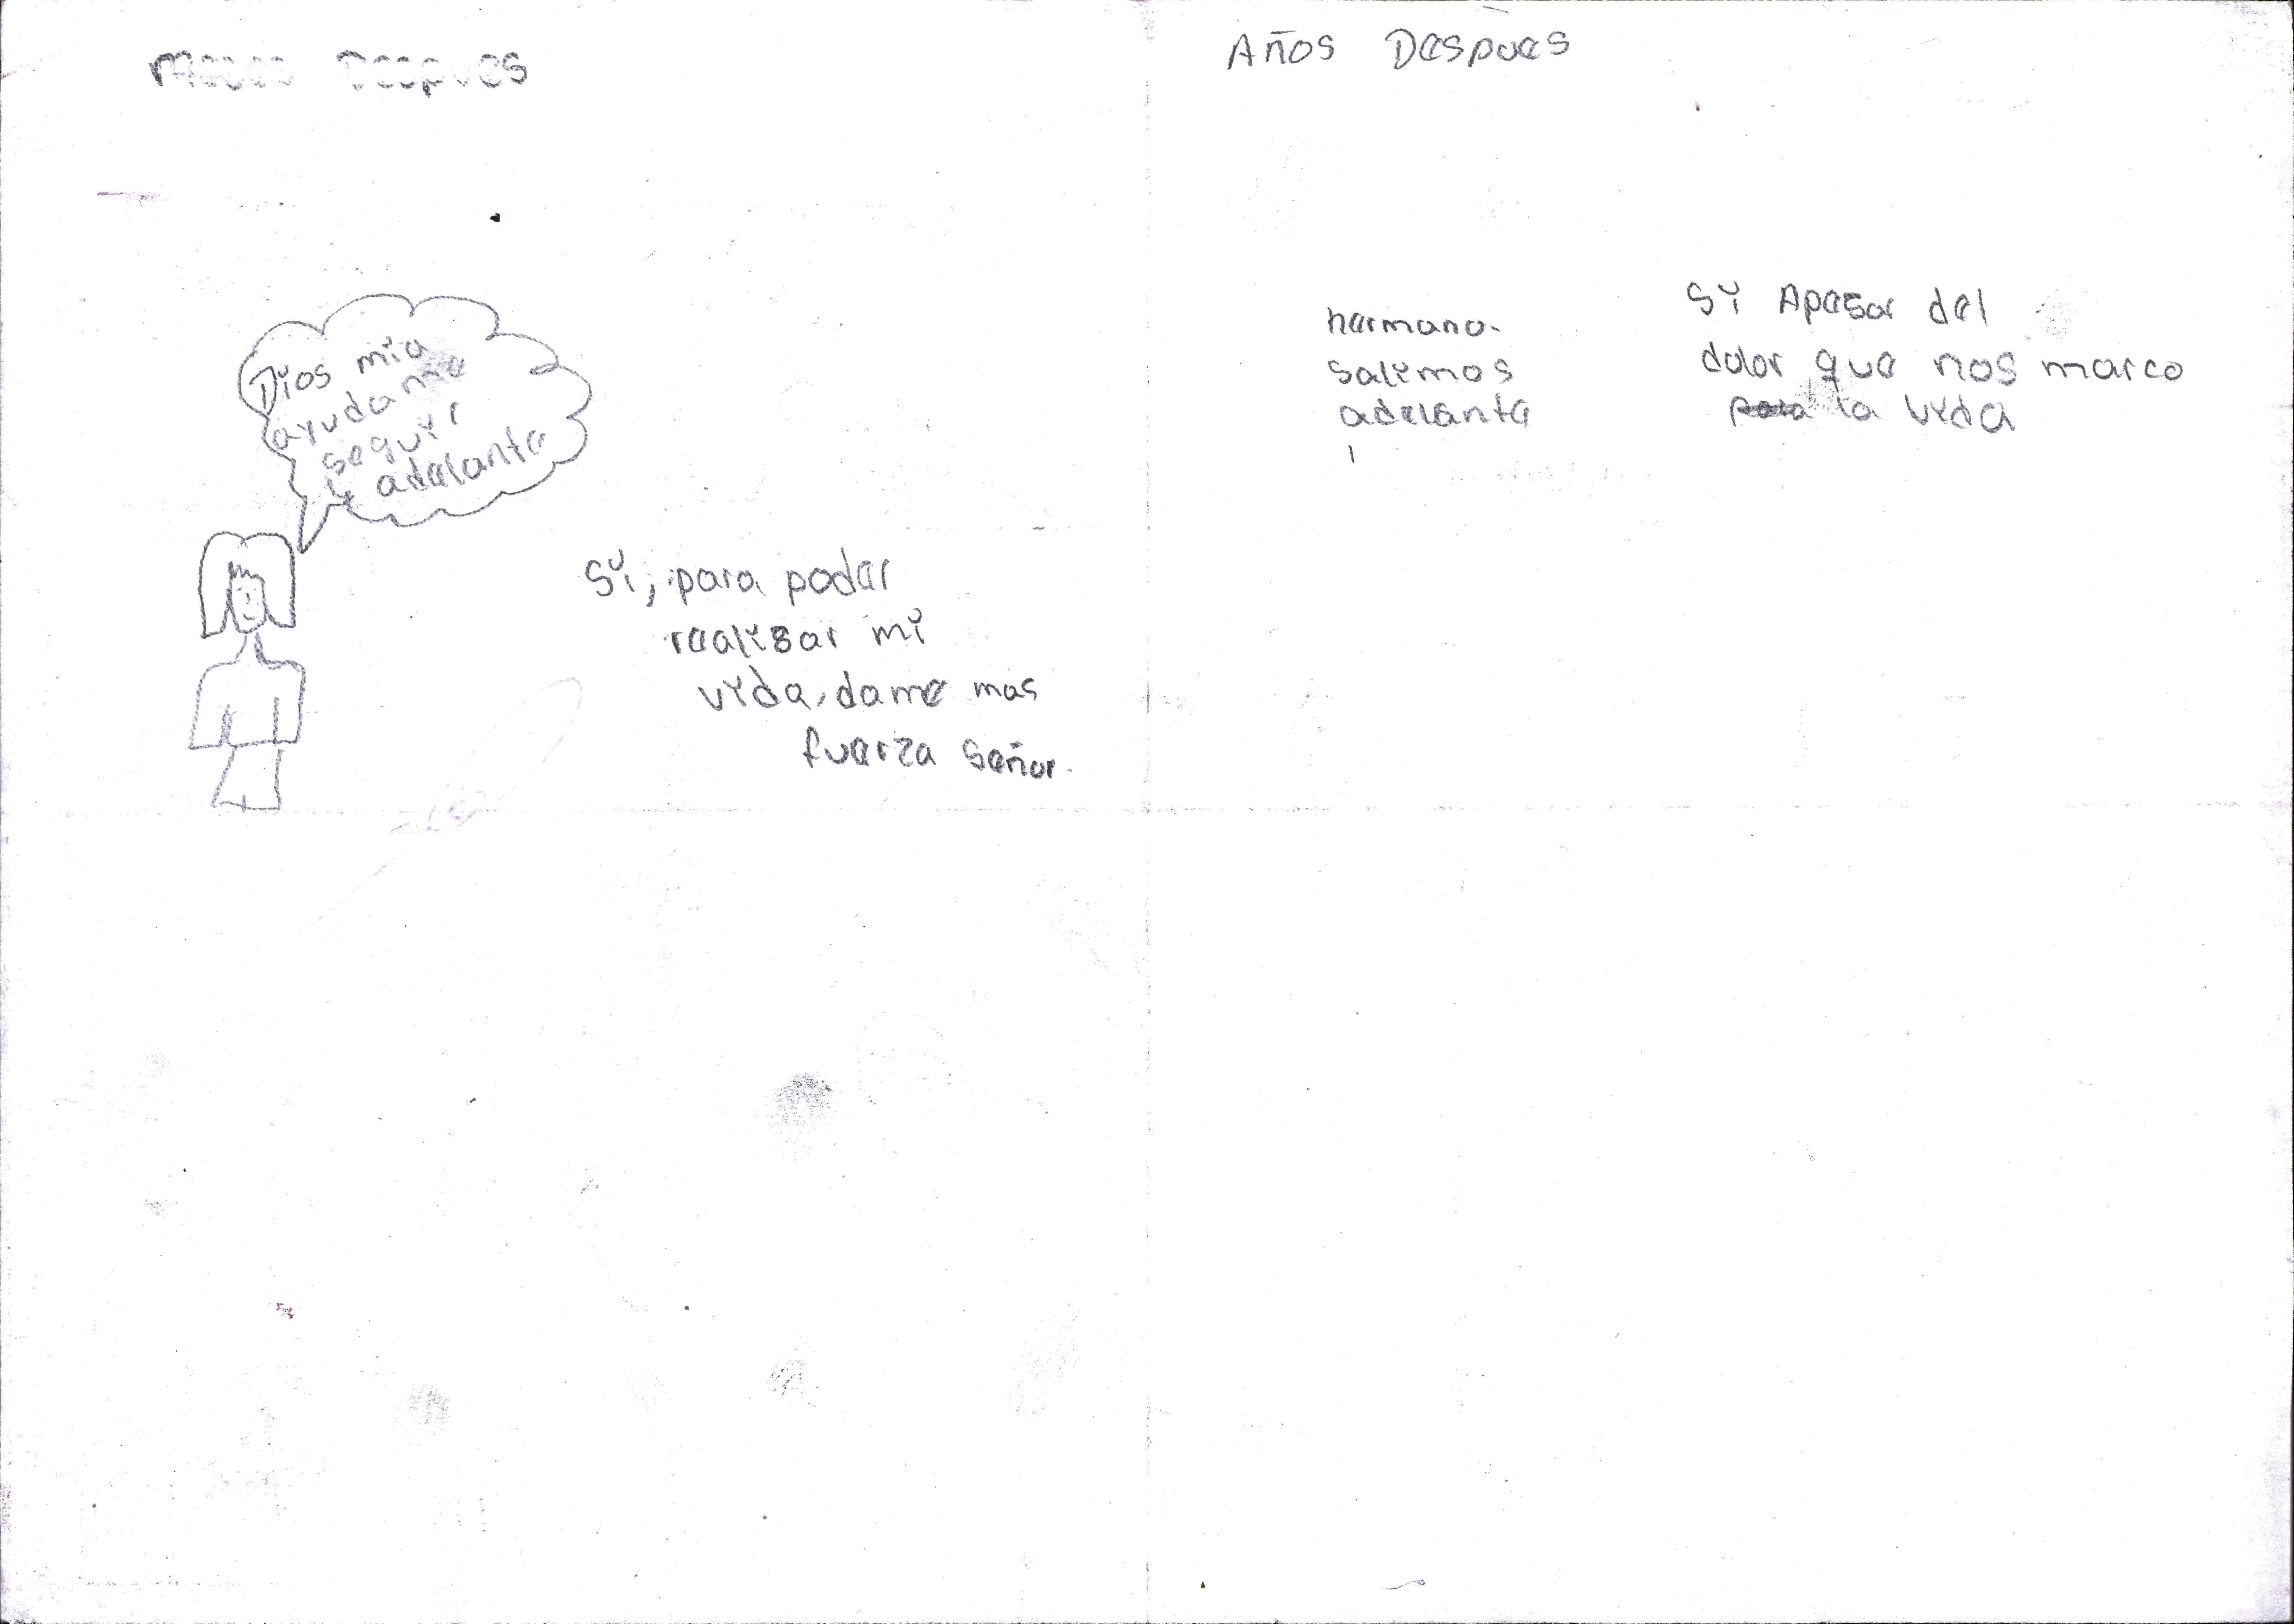 Meses Despues
Dios mio
ayudame
seguir
adelante
Si, para poder
realisar mi
vida, dame mas
fuerza señor.
Años Despues
hermano.
salimos
adelante
Si Apesar del
dolor que nos marco
la vida